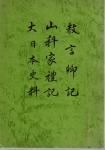 敎言卿記
山科家禮記
大日本史料